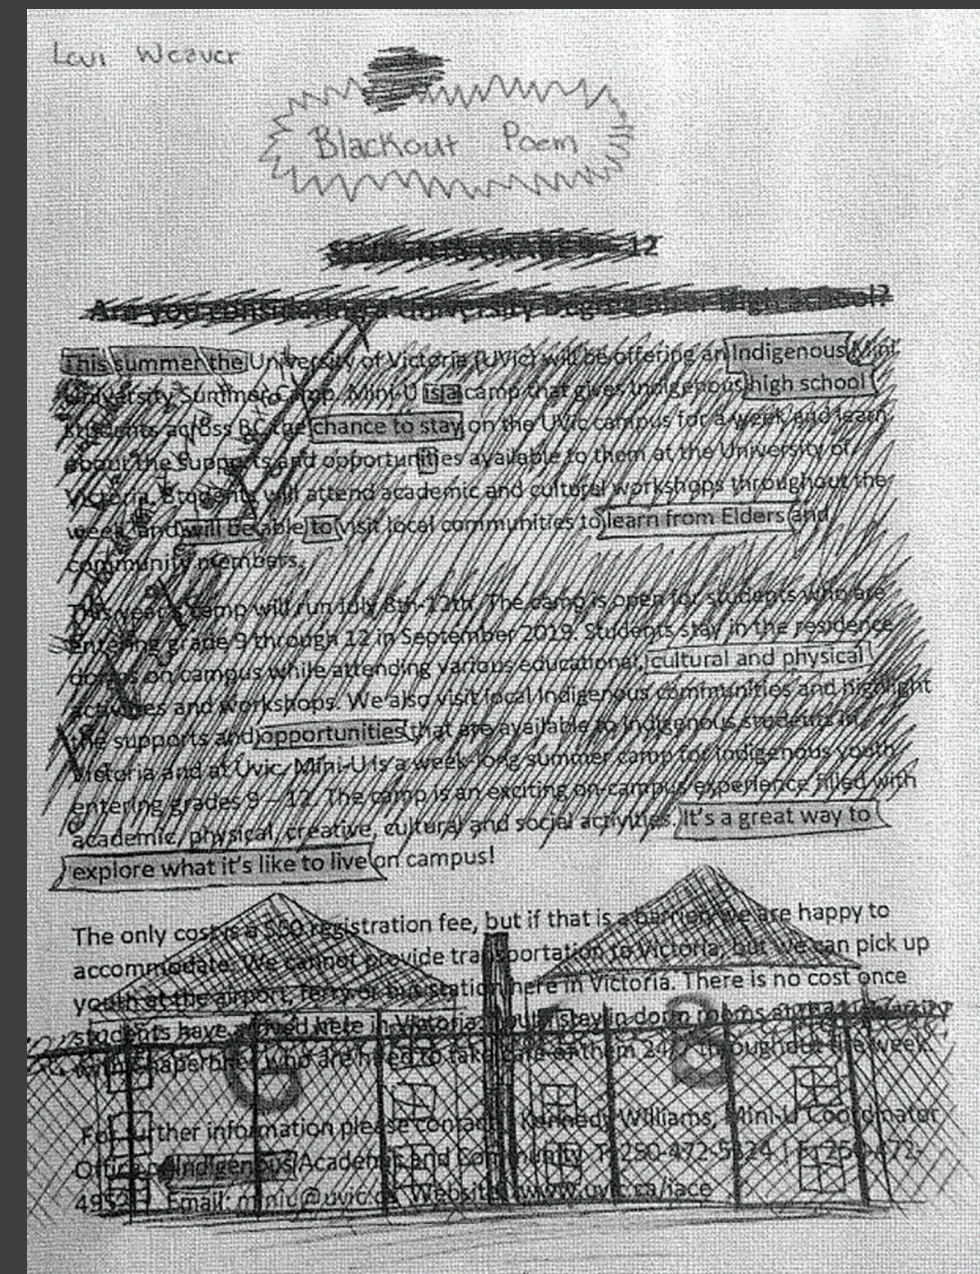 Levi Weaver
Blackout Poem
STUDENTS GRADES 9 - 12
Are you considering a University Degree after High School?
This summer the University of Victoria (UVic) will be offering an Indigenous Mini
University Summer Camp. Mini-U is a camp that gives Indigenous high school
students across BC the chance to stay on the UVic campus for a week and learn
about the supports and opportunities available to them at the University of
Victoria. Students will attend academic and cultural workshops throughout the
week, and will be able to visit local communities to learn from Elders and
community members.
This year's camp will run July 8th-12th. The camp is open for students who are
entering grade 9 through 12 in September 2019. Students stay in the residence
dorms on campus while attending various educational, cultural and physical
activities and workshops. We also visit local Indigenous communities and highlight
the supports and opportunities that are available to Indigenous students in
Victoria and at Uvic. Mini-U is a week-long summer camp for Indigenous youth
entering grades 9 – 12. The camp is an exciting on-campus experience filled with
academic, physical, creative, cultural and social activities. It's a great way to
explore what it's like to live on campus!
The only cost is a $50 registration fee, but if that is a barrier we are happy to
accommodate. We cannot provide transportation to Victoria, but we can pick up
youth at the airport, ferry or bus station here in Victoria. There is no cost once
students have arrived here in Victoria. Youth stay in dorm rooms at the
with chaperones who are hired to take care of them 24/7 throughout the week.
For further information please contact: Kennedy Williams, Mini-U Coordinator
Office of Indigenous Academic and Community T: 250-472-5524 | F: 250-472-
495 Email: miniu@uvic.ca Website: www.uvic.ca/iace